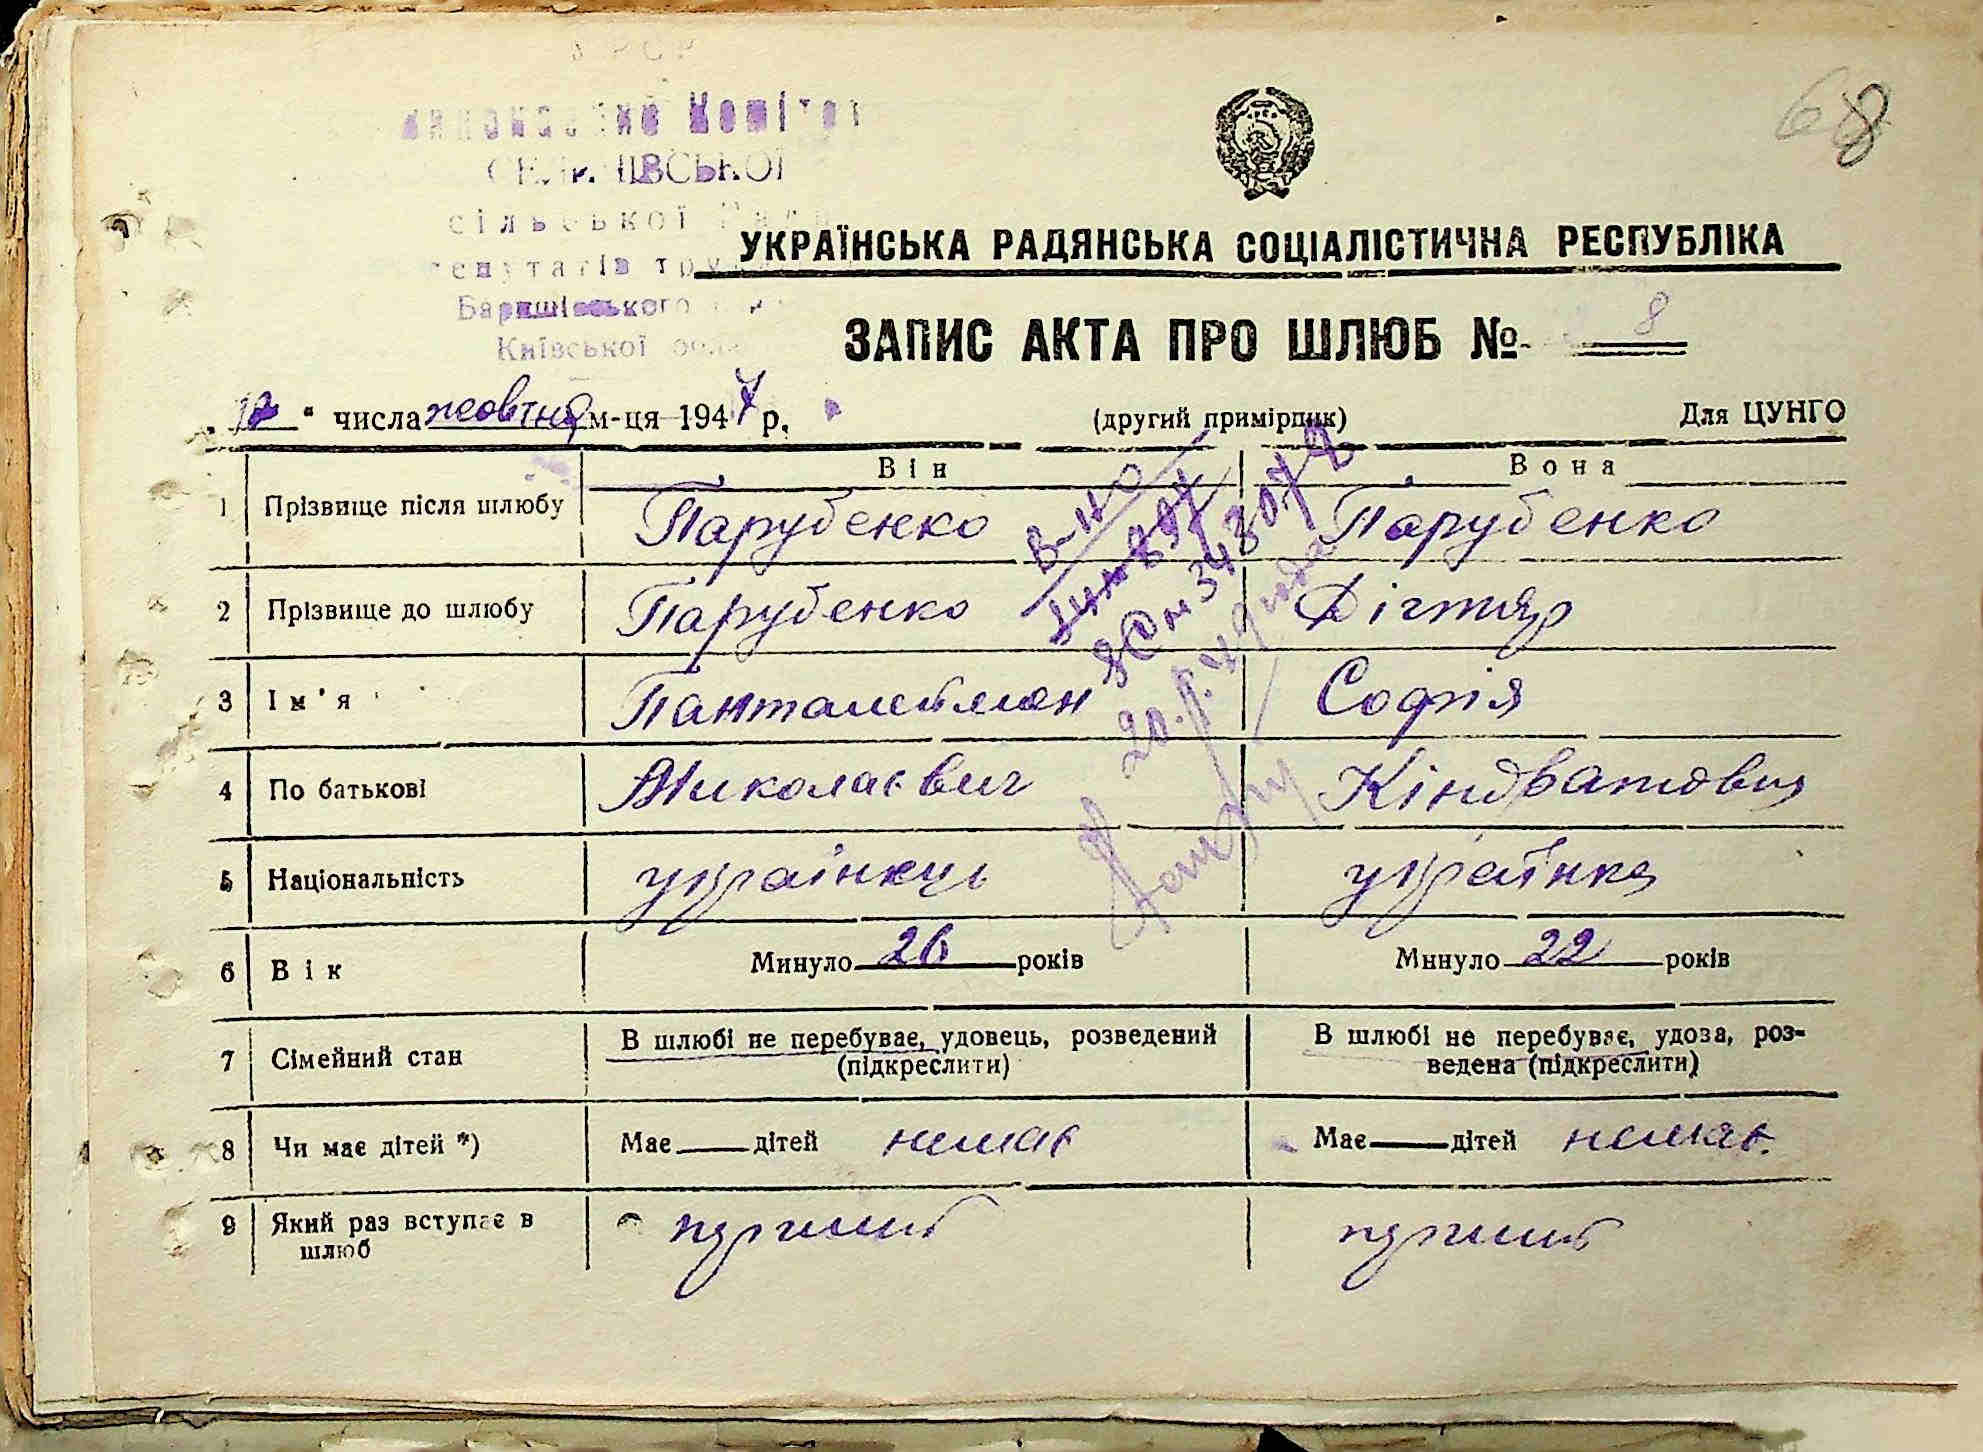 68
Комітет
сільської
Баришівського
Київської
УКРАЇНСЬКА РАДЯНСЬКА СОЦІАЛІСТИЧНА РЕСПУБЛІКА
ЗАПИС АКТА ПРО ШЛЮБ № 8
" числа жовтня м-ця 1947 р. (другий примірник) Для ЦУНГО
Він Вона
1 Прізвище після шлюбу Парубенко Парубенко
2 Прізвище до шлюбу Парубенко Дігтяр
3 Ім'я Панталеймон Софія
4 По батькові Миколаєвич Кіндратовна
5 Національність українець українка
6 Вік Минуло 26 років Минуло 22 років
7 Сімейний стан В шлюбі не перебуває, удовець, розведений (підкреслити) В шлюбі не перебуває, удова, роз-
ведена (підкреслити)
8 Чи має дітей *) Має дітей немає Має дітей немає.
9 Який раз вступає в шлюб перший перший